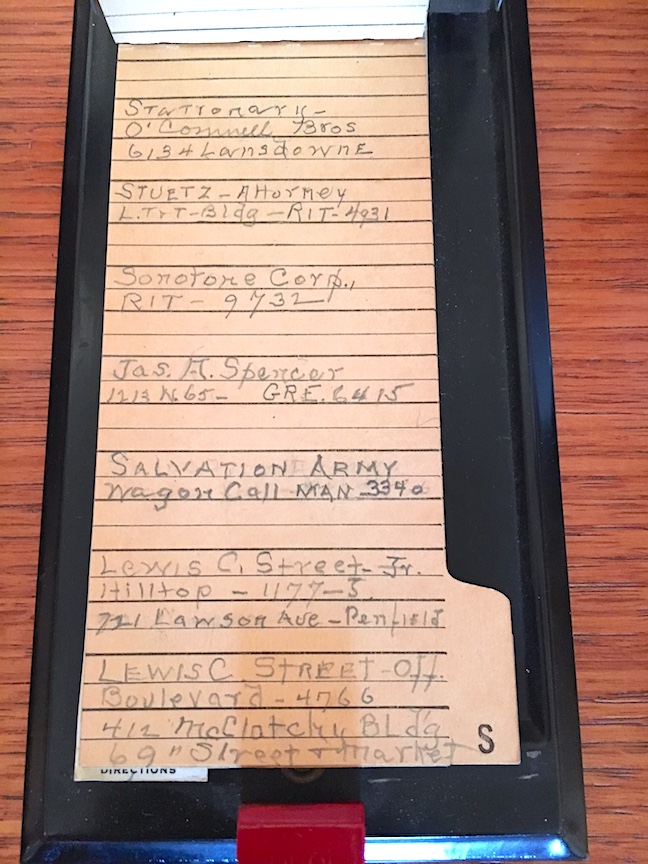 Stationary -
O'Connell Bros
6134 Lansdowne
STUETZ - Attorney
L.T&T - Bldg - RIT - 4931
Sonotone Corp.,
RIT - 9732
Jas. A. Spencer
1213 N. 65 - GRE. 6415
SALVATION ARMY
Wagon Call MAN 3340
Lewis C. Street - Jr.
Hilltop - 1177-J
721 Lawson Ave - Penfield
LEWIS C STREET - Off.
Boulevard - 4766
412 McClatchy BLdg
69" Street + Market
S
DIRECTIONS